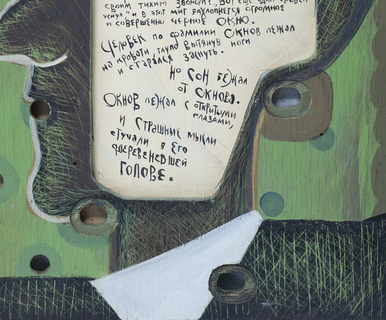 своим тихим звоном.
усну". и в этот миг захлопнется огромное
и совершенно чёрное окно.
Человек по фамилии Окнов лежал
на кровати глупо вытянув ноги
и старался заснуть.
Но сон бежал
от Окнова.
Окнов лежал с открытыми
глазами,
и страшные мысли
стучали в его
одеревеневшей
голове.